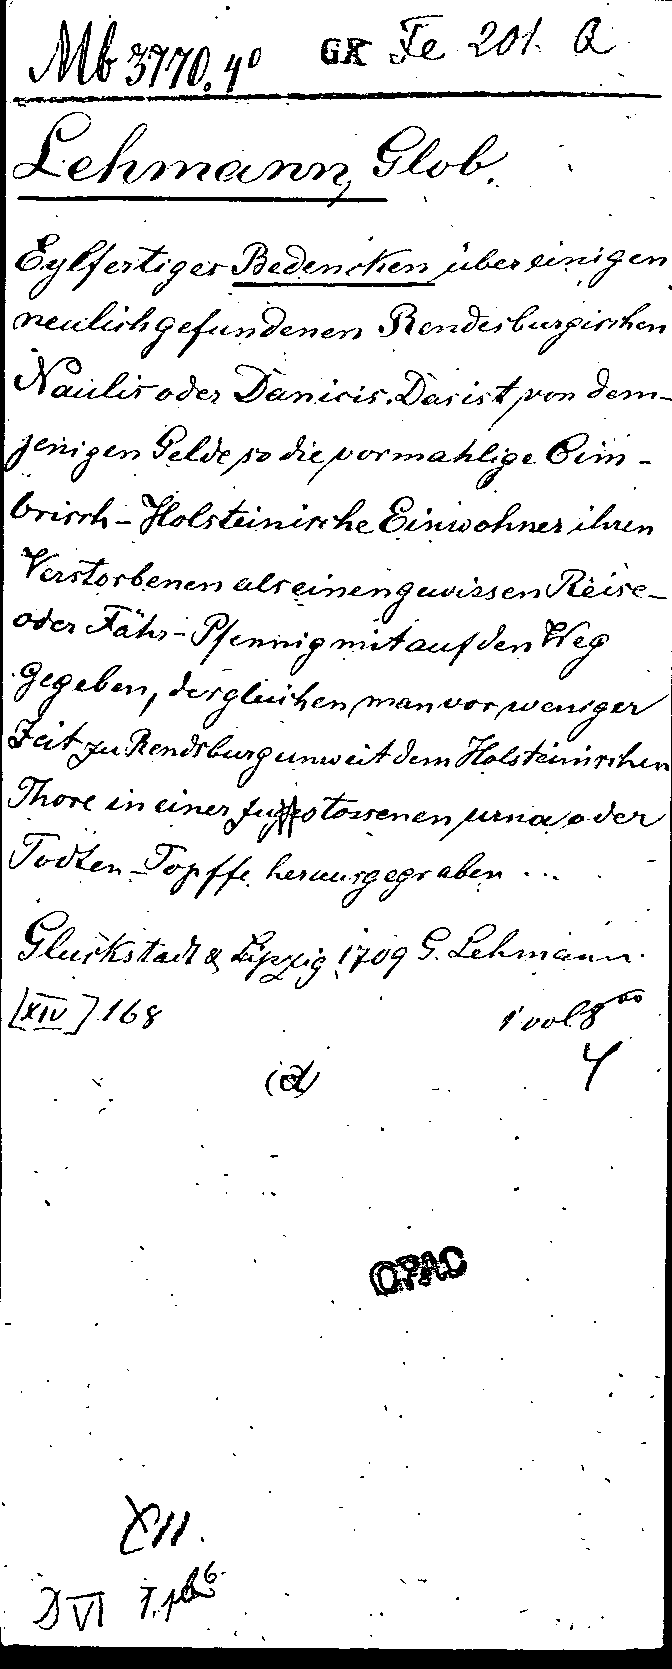 Mb 3770. 4° GX Fe 201. Q
Lehmann, Glob.
Eylfertiges Bedencken über einigen
neulich gefundenen Rendesburgischen
Naulis oder Danicis. Das ist von dem-
jenigen Gelde, so die vormahlige Cim-
brisch-Holsteinische Einwohner ihren
Verstorbenen als einen gewissen Reise-
oder Fähr-Pfennig mit auf den Weg
gegeben, dergleichen man vor weniger
Zeit zu Rendsburg unweit dem Holsteinischen
Thore in einer zustossenen urna oder
Todten-Topffe herausgegraben ...
Gluckstadt & Lipzig 1709 G. Lehmann.
[XIV] 168 1 vol 8°°
4
(a)
OPAC
XII.
D VI